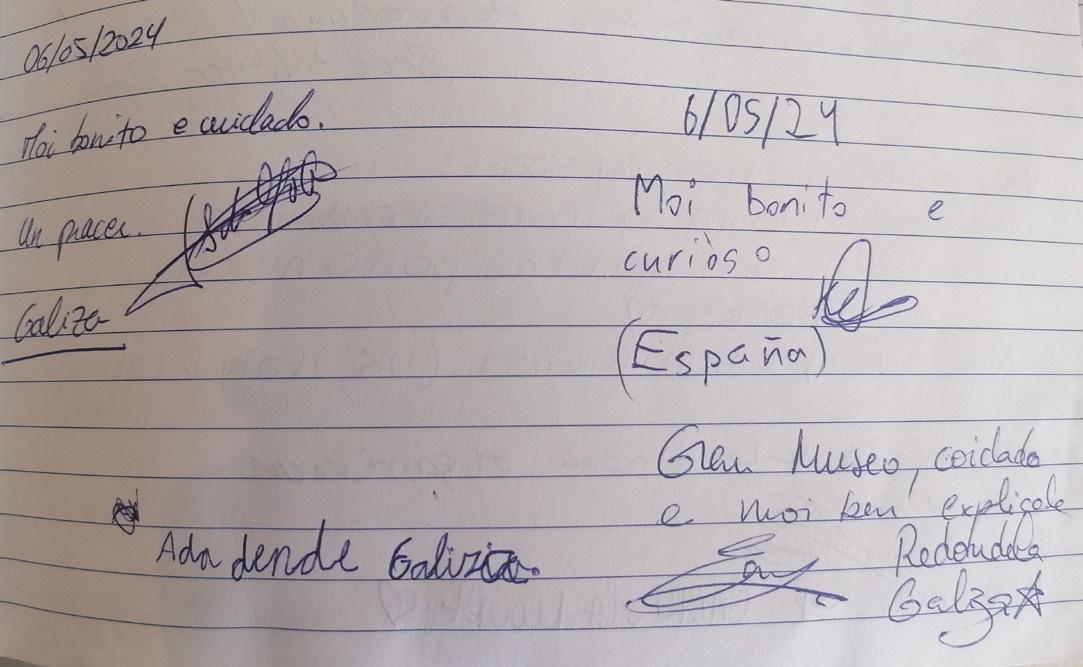 06/05/2024
Moi bonito e cuidado.
Un pracer.
Galiza
6/05/24
Moi bonito e
curioso
(España)
Gran Museo, coidado
e moi ben explicado
Redondela
Galiza
Ada dende Galizia.